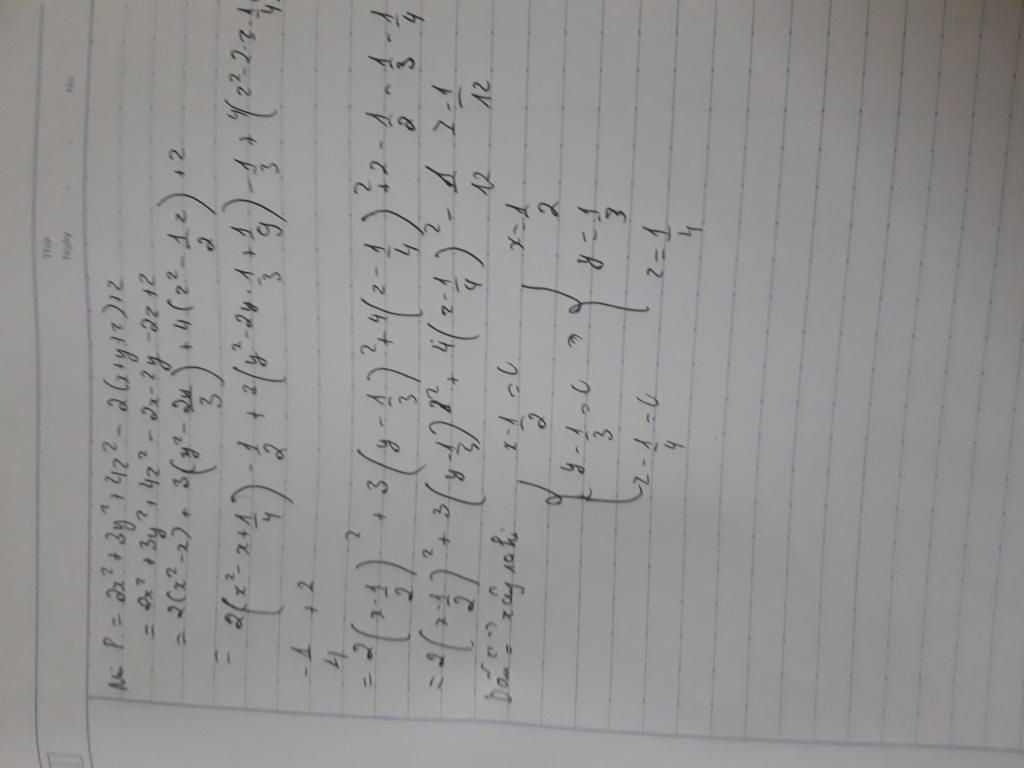 Thứ
Ngày
No.
Min P = 2x² + 3y² + 4z² - 2(x+y+z)+2
= 2x² + 3y² + 4z² - 2x - 2y - 2z + 2
= 2(x² - x) + 3(y² - 2y/3) + 4(z² - 1/2 z) + 2
= 2(x² - x + 1/4) - 1/2 + 3(y² - 2y·1/3 + 1/9) - 1/3 + 4(z² - 2·z·1/4
- 1/4 + 2
= 2(x - 1/2)² + 3(y - 1/3)² + 4(z - 1/4)² + 2 - 1/2 - 1/3 - 1/4
= 2(x - 1/2)² + 3(y - 1/3)² + 4(z - 1/4)² - 1/12 ≥ -1/12
Dấu "=" xảy ra khi
{ x - 1/2 = 0 { x = 1/2
y - 1/3 = 0 => y = 1/3
z - 1/4 = 0 z = 1/4